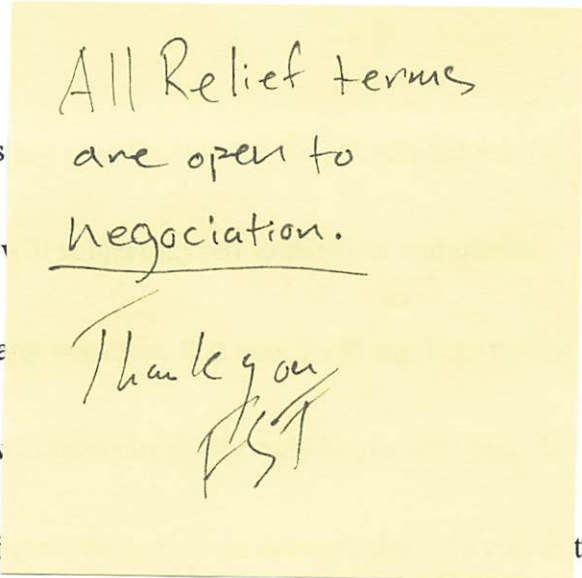 All Relief terms
are open to
negociation.
Thank you
FST